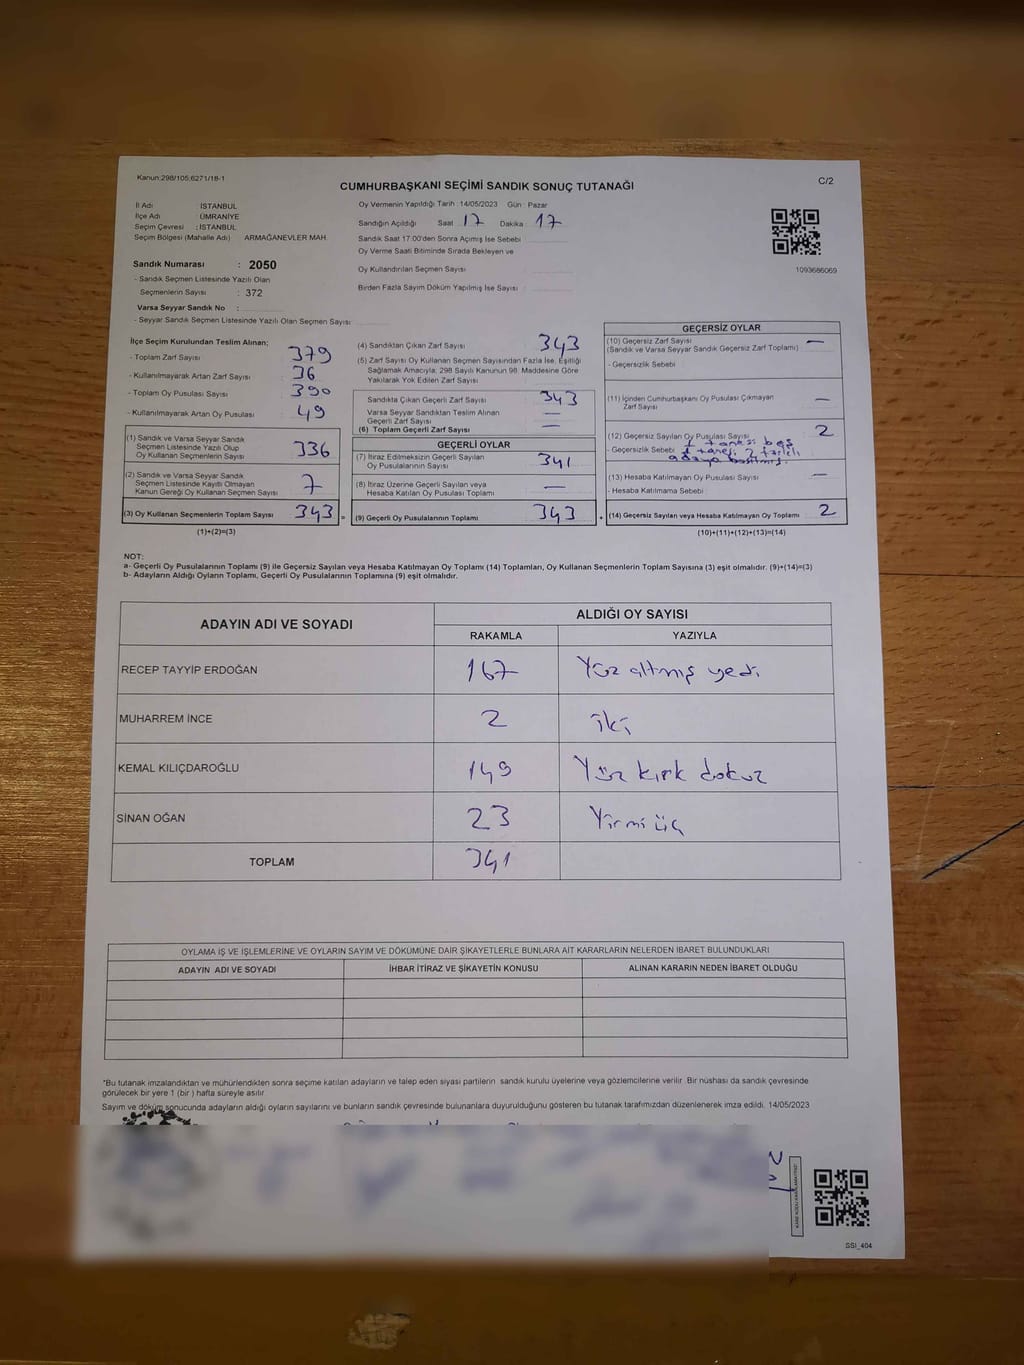 Kanun:298/105;6271/18-1
C/2
CUMHURBAŞKANI SEÇİMİ SANDIK SONUÇ TUTANAĞI
İl Adı : İSTANBUL
İlçe Adı : ÜMRANİYE
Seçim Çevresi : İSTANBUL
Seçim Bölgesi (Mahalle Adı) ARMAĞANEVLER MAH.
Sandık Numarası : 2050
- Sandık Seçmen Listesinde Yazılı Olan
Seçmenlerin Sayısı : 372
Varsa Seyyar Sandık No :
- Seyyar Sandık Seçmen Listesinde Yazılı Olan Seçmen Sayısı :
Oy Vermenin Yapıldığı Tarih : 14/05/2023 Gün : Pazar
Sandığın Açıldığı Saat 17 Dakika : 17
Sandık Saat 17:00'den Sonra Açımış İse Sebebi :
Oy Verme Saati Bitiminde Sırada Bekleyen ve
Oy Kullandırılan Seçmen Sayısı :
Birden Fazla Sayım Döküm Yapılmış İse Sayısı :
1093686069
İlçe Seçim Kurulundan Teslim Alınan;
- Toplam Zarf Sayısı 379
- Kullanılmayarak Artan Zarf Sayısı : 36
- Toplam Oy Pusulası Sayısı : 390
- Kullanılmayarak Artan Oy Pusulası : 49
(1) Sandık ve Varsa Seyyar Sandık
Seçmen Listesinde Yazılı Olup
Oy Kullanan Seçmenlerin Sayısı 336
(2) Sandık ve Varsa Seyyar Sandık
Seçmen Listesinde Kayıtlı Olmayan
Kanun Gereği Oy Kullanan Seçmen Sayısı 7
(3) Oy Kullanan Seçmenlerin Toplam Sayısı 343 =
(1)+(2)=(3)
(4) Sandıktan Çıkan Zarf Sayısı 343
(5) Zarf Sayısı Oy Kullanan Seçmen Sayısından Fazla İse, Eşitliği
Sağlamak Amacıyla; 298 Sayılı Kanunun 98. Maddesine Göre
Yakılarak Yok Edilen Zarf Sayısı :
Sandıkta Çıkan Geçerli Zarf Sayısı 343
Varsa Seyyar Sandıktan Teslim Alınan
Geçerli Zarf Sayısı —
(6) Toplam Geçerli Zarf Sayısı —
GEÇERLİ OYLAR
(7) İtiraz Edilmeksizin Geçerli Sayılan
Oy Pusulalarının Sayısı 341
(8) İtiraz Üzerine Geçerli Sayılan veya
Hesaba Katılan Oy Pusulası Toplamı —
(9) Geçerli Oy Pusulalarının Toplamı 343 +
GEÇERSİZ OYLAR
(10) Geçersiz Zarf Sayısı —
(Sandık ve Varsa Seyyar Sandık Geçersiz Zarf Toplamı)
- Geçersizlik Sebebi :
(11) İçinden Cumhurbaşkanı Oy Pusulası Çıkmayan
Zarf Sayısı —
(12) Geçersiz Sayılan Oy Pusulası Sayısı 2
1 tanesi boş
- Geçersizlik Sebebi : 1 tanesi 2 farklı
adaya basılmış.
(13) Hesaba Katılmayan Oy Pusulası Sayısı —
- Hesaba Katılmama Sebebi :
(14) Geçersiz Sayılan veya Hesaba Katılmayan Oy Toplamı 2
(10)+(11)+(12)+(13)=(14)
NOT:
a- Geçerli Oy Pusulalarının Toplamı (9) ile Geçersiz Sayılan veya Hesaba Katılmayan Oy Toplamı (14) Toplamları, Oy Kullanan Seçmenlerin Toplam Sayısına (3) eşit olmalıdır. (9)+(14)=(3)
b- Adayların Aldığı Oyların Toplamı, Geçerli Oy Pusulalarının Toplamına (9) eşit olmalıdır.
ADAYIN ADI VE SOYADI ALDIĞI OY SAYISI
RAKAMLA YAZIYLA
RECEP TAYYİP ERDOĞAN 167 Yüz altmış yedi
MUHARREM İNCE 2 iki
KEMAL KILIÇDAROĞLU 149 Yüz kırk dokuz
SİNAN OĞAN 23 Yirmi üç
TOPLAM 341
OYLAMA İŞ VE İŞLEMLERİNE VE OYLARIN SAYIM VE DÖKÜMÜNE DAİR ŞİKAYETLERLE BUNLARA AİT KARARLARIN NELERDEN İBARET BULUNDUKLARI
ADAYIN ADI VE SOYADI İHBAR İTİRAZ VE ŞİKAYETİN KONUSU ALINAN KARARIN NEDEN İBARET OLDUĞU
"Bu tutanak imzalandıktan ve mühürlendikten sonra seçime katılan adayların ve talep eden siyasi partilerin sandık kurulu üyelerine veya gözlemcilerine verilir. Bir nüshası da sandık çevresinde
görülecek bir yere 1 (bir ) hafta süreyle asılır
Sayım ve döküm sonucunda adayların aldığı oyların sayılarını ve bunların sandık çevresinde bulunanlara duyurulduğunu gösteren bu tutanak tarafımızdan düzenlenerek imza edildi. 14/05/2023
SSI_404